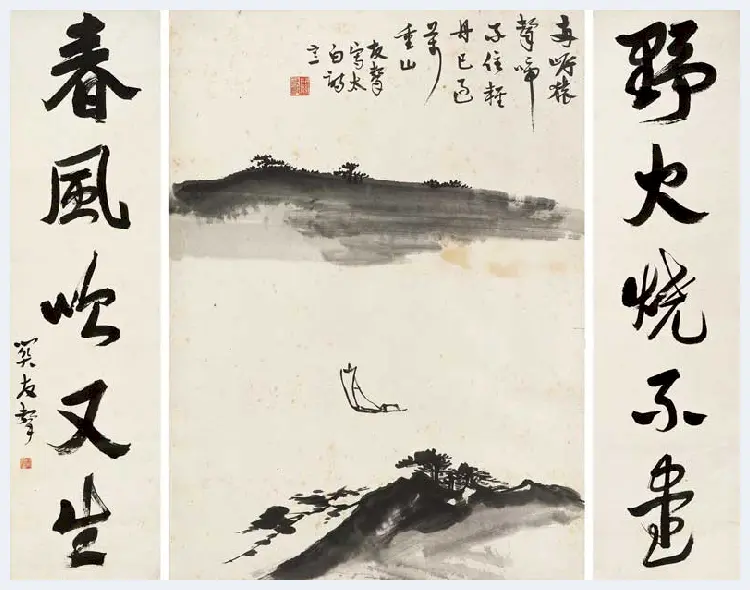 野火燒不盡
兩岸猿
聲啼
不住輕
舟已過
萬
重山
友聲
寫太
白詩
意
春風吹又生
關友聲